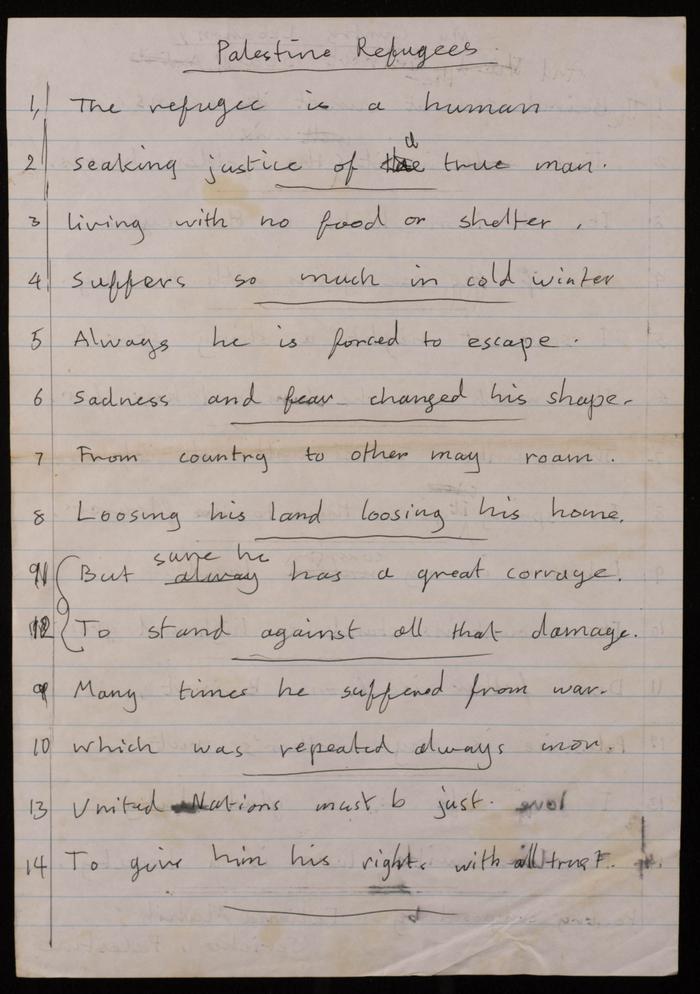 Palestine Refugees.
1, The refugee is a human
2 seaking justice of a true man.
3 living with no food or shelter,
4 Suffers so much in cold winter
5 Always he is forced to escape.
6 Sadness and fear changed his shape.
7 From country to other may roam.
8 Loosing his land loosing his home.
sure he
11 But alway has a great corrage.
12 To stand against all that damage.
9 Many times he suffered from war.
10 which was repeated always mor.
13 United Nations must b just.
14 To give him his rights with all trust.